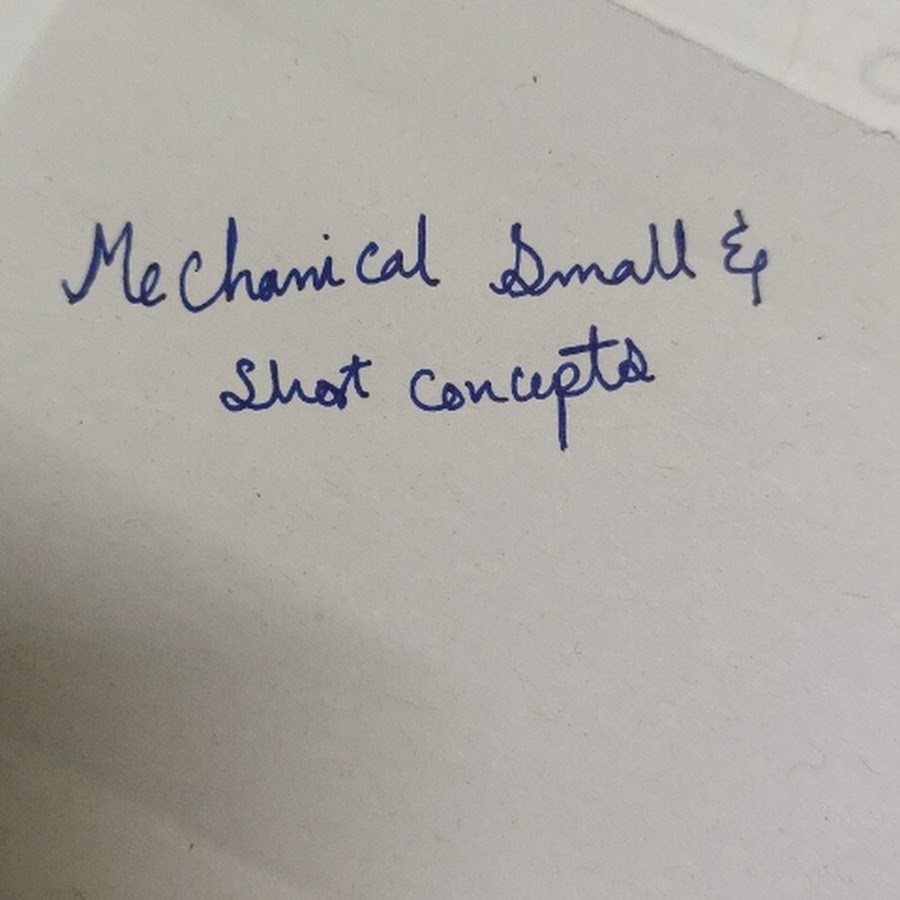 Mechanical Small &
Short concepts